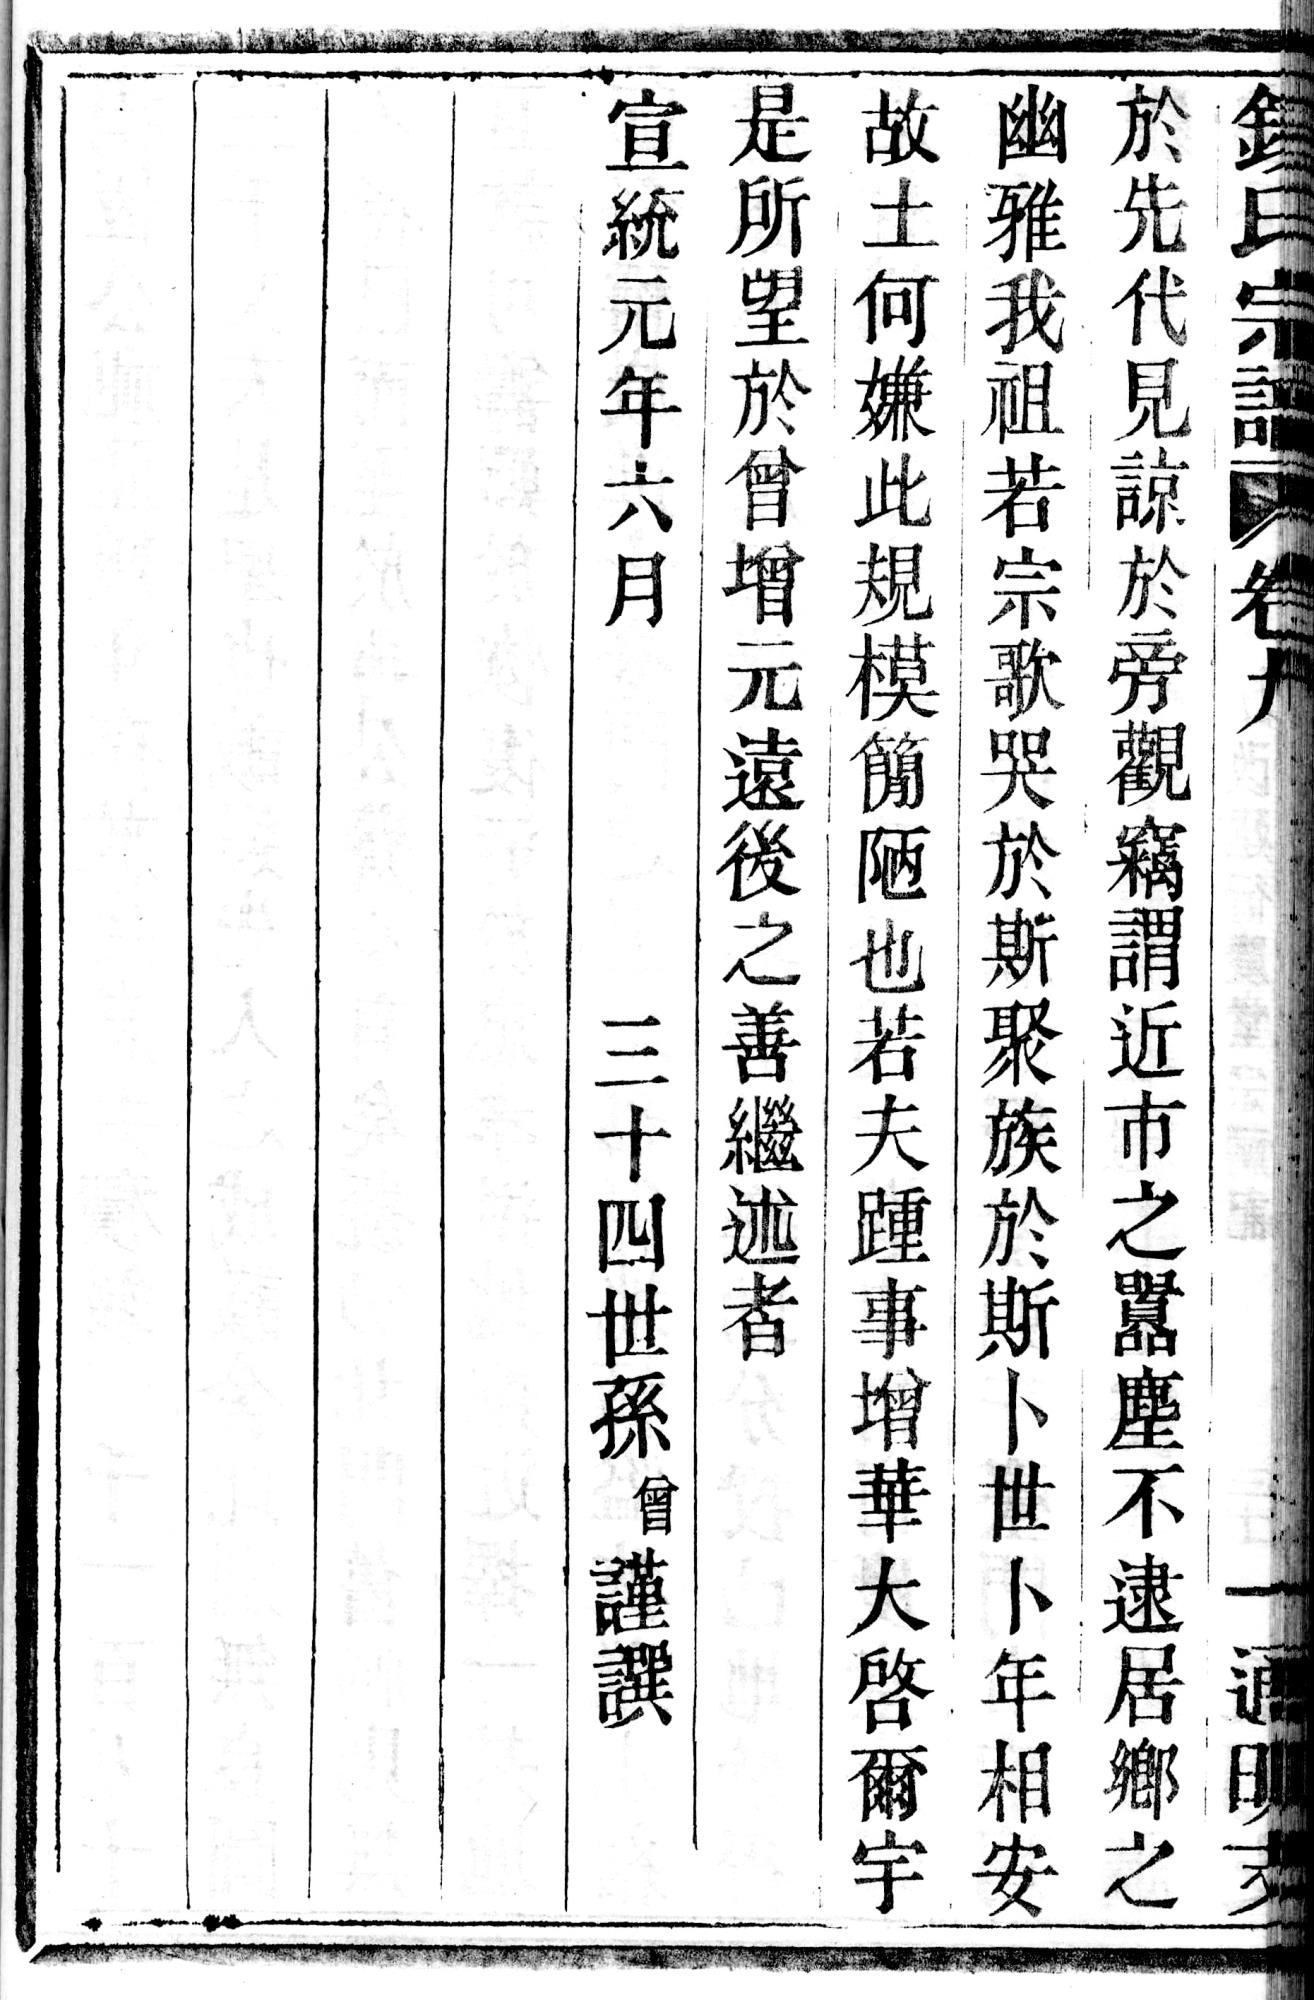 氏宗譜 卷九 一 通明支
於先代見諒於旁觀竊謂近市之囂塵不逮居鄉之
幽雅我祖若宗歌哭於斯聚族於斯卜世卜年相安
故土何嫌此規模簡陋也若夫踵事增華大啓爾宇
是所望於曾增元遠後之善繼述者
宣統元年六月 三十四世孫曾謹譔